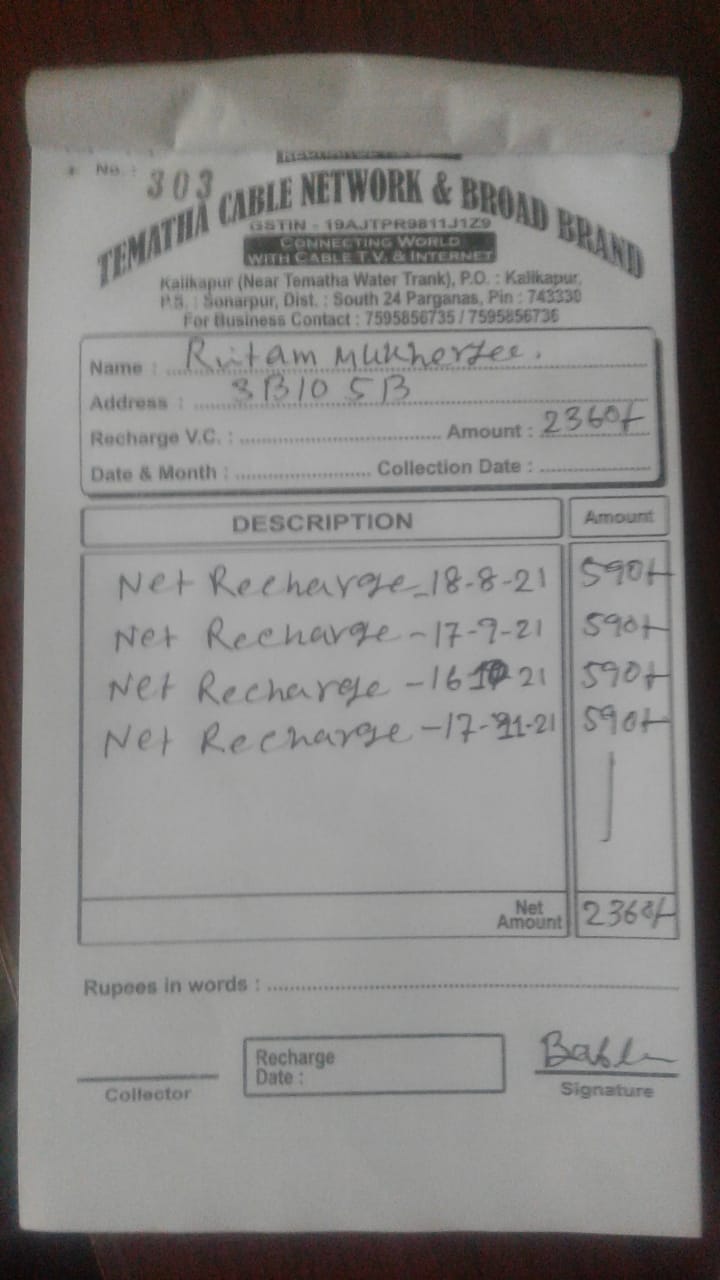 No. : 303
TEMATHA CABLE NETWORK & BROAD BRAND
GSTIN - 19AJTPR9811J1Z9
CONNECTING WORLD
WITH CABLE T.V. & INTERNET
Kalikapur (Near Tematha Water Trank), P.O. : Kalikapur,
P.S. : Sonarpur, Dist. : South 24 Parganas, Pin : 743330
For Business Contact : 7595856735 / 7595856736
Name : Ritam Mukherjee.
Address : 3B10 5B
Recharge V.C. : Amount : 2360/-
Date & Month : Collection Date :
DESCRIPTION Amount
Net Recharge - 18-8-21 590/-
Net Recharge - 17-9-21 590/-
Net Recharge - 16 10 21 590/-
Net Recharge - 17-11-21 590/-
Net Amount 2360/-
Rupees in words :
Recharge
Date :
Collector
Signature